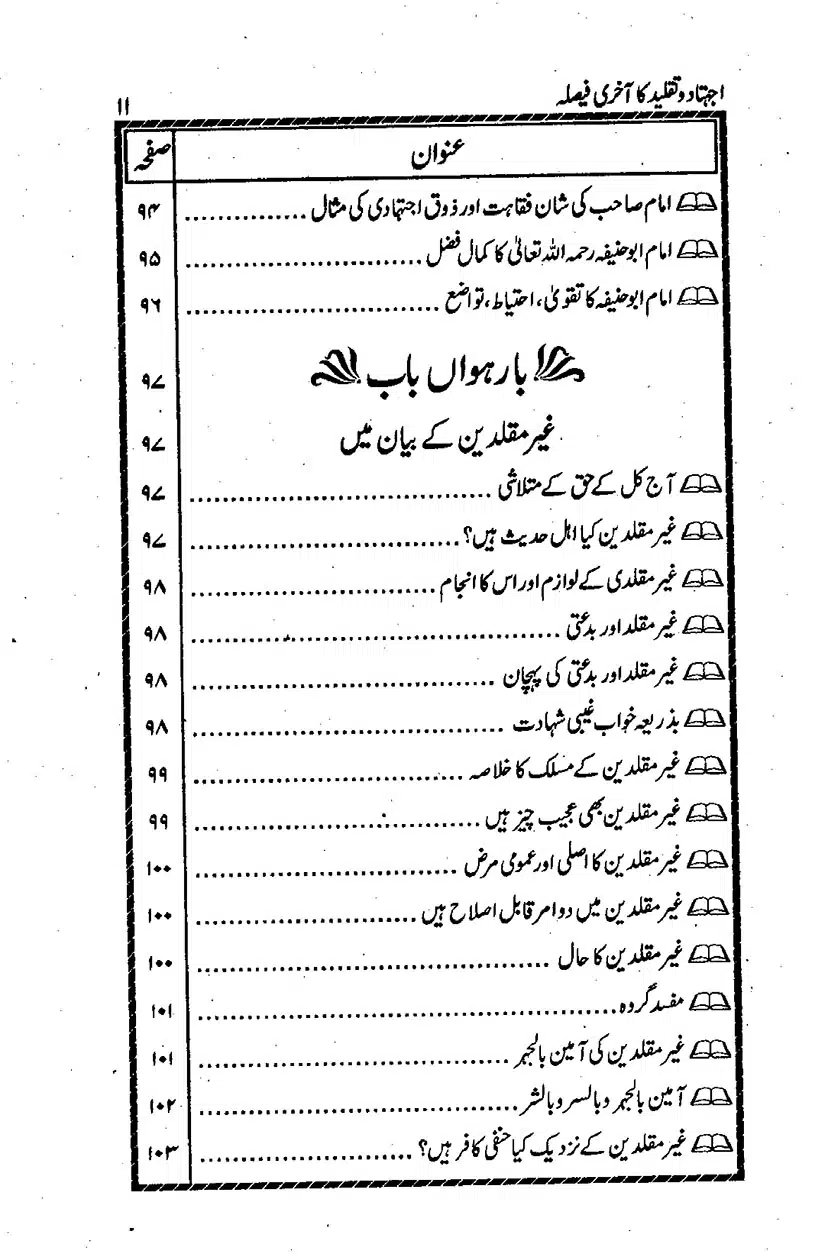 اجتہاد و تقلید کا آخری فیصلہ ۱۱
عنوان صفحہ
امام صاحب کی شان فقاہت اور ذوق اجتہادی کی مثال ............... ۹۴
امام ابو حنیفہ رحمہ اللہ تعالیٰ کا کمال فضل ............................... ۹۵
امام ابو حنیفہ کا تقویٰ، احتیاط، تواضع ................................. ۹۶
بارہواں باب ۹۷
غیر مقلدین کے بیان میں ۹۷
آج کل کے حق کے متلاشی ....................................... ۹۷
غیر مقلدین کیا اہل حدیث ہیں؟ ................................... ۹۷
غیر مقلدی کے لوازم اور اس کا انجام ................................ ۹۸
غیر مقلد اور بدعتی ................................................ ۹۸
غیر مقلد اور بدعتی کی پہچان ....................................... ۹۸
بذریعہ خواب غیبی شہادت ........................................ ۹۸
غیر مقلدین کے مسلک کا خلاصہ ................................... ۹۹
غیر مقلدین بھی عجیب چیز ہیں ..................................... ۹۹
غیر مقلدین کا اصلی اور عمومی مرض .................................. ۱۰۰
غیر مقلدین میں دو امر قابل اصلاح ہیں ............................. ۱۰۰
غیر مقلدین کا حال .............................................. ۱۰۰
مفسد گروہ ...................................................... ۱۰۱
غیر مقلدین کی آمین بالجہر ........................................ ۱۰۱
آمین بالجہر و بالسر و بالشر ......................................... ۱۰۲
غیر مقلدین کے نزدیک کیا حنفی کافر ہیں؟ ........................... ۱۰۳